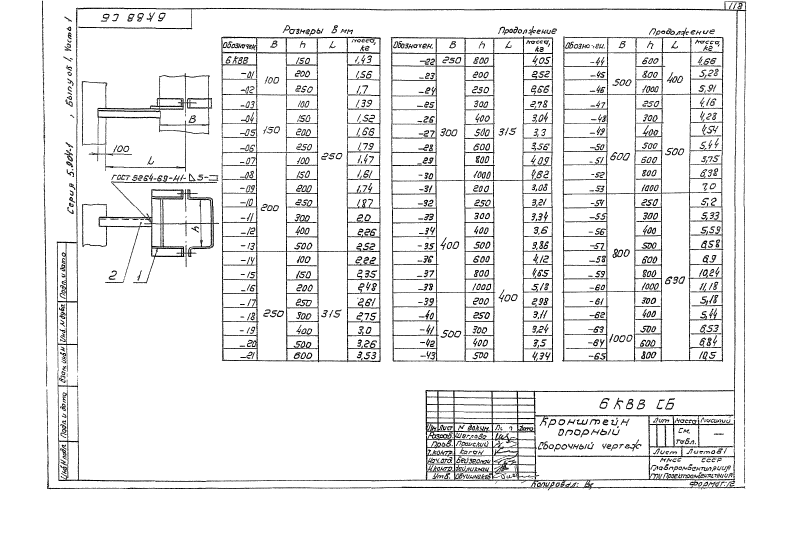 118
6КВВ СБ
Серия 5.904-1 , Выпуск 1, Часть 1
Размеры в мм
Продолжение
Продолжение
Обозначен. B h L масса, кг
6КВВ 100 150 250 1,43
-01 200 1,56
-02 250 1,7
-03 150 100 1,39
-04 150 1,52
-05 200 1,66
-06 250 1,79
-07 200 100 1,47
-08 150 1,61
-09 200 1,74
-10 250 1,87
-11 300 2,0
-12 400 2,26
-13 500 2,52
-14 250 100 315 2,22
-15 150 2,35
-16 200 2,48
-17 250 2,61
-18 300 2,75
-19 400 3,0
-20 500 3,26
-21 600 3,53
Обозначен. B h L масса, кг
-22 250 800 315 4,05
-23 300 200 2,52
-24 250 2,66
-25 300 2,78
-26 400 3,04
-27 500 3,3
-28 600 3,56
-29 800 4,09
-30 1000 4,62
-31 400 200 400 3,08
-32 250 3,21
-33 300 3,34
-34 400 3,6
-35 500 3,86
-36 600 4,12
-37 800 4,65
-38 1000 5,18
-39 500 200 2,98
-40 250 3,11
-41 300 3,24
-42 400 3,5
-43 500 4,34
Обозначен. B h L масса, кг
-44 500 600 400 4,66
-45 800 5,28
-46 1000 5,91
-47 600 250 500 4,16
-48 300 4,28
-49 400 4,54
-50 500 5,44
-51 600 5,75
-52 800 6,38
-53 1000 7,0
-54 800 250 630 5,2
-55 300 5,33
-56 400 5,59
-57 500 6,58
-58 600 6,9
-59 800 10,24
-60 1000 11,18
-61 1000 300 5,18
-62 400 5,44
-63 500 6,53
-64 600 6,84
-65 800 10,5
B
100
L
ГОСТ 5264-69-Н1-
h
2
1
Инв.№подл. Подп. и дата Взам. инв.№ Инв.№дубл. Подп. и дата
6КВВ СБ
Кронштейн
опорный
Сборочный чертеж
Лит Масса Масштаб
См. табл. —
Лист Листов 1
ММСС СССР
Главпромвентиляция
ГПИ Проектпромвентиляция
Изм Лист № докум. Дата
Разраб. Щеглова
Пров.
Т.контр. Коган
Нач.отд.
Н.контр.
Утв. Овчинников
Копировал:
Формат 12